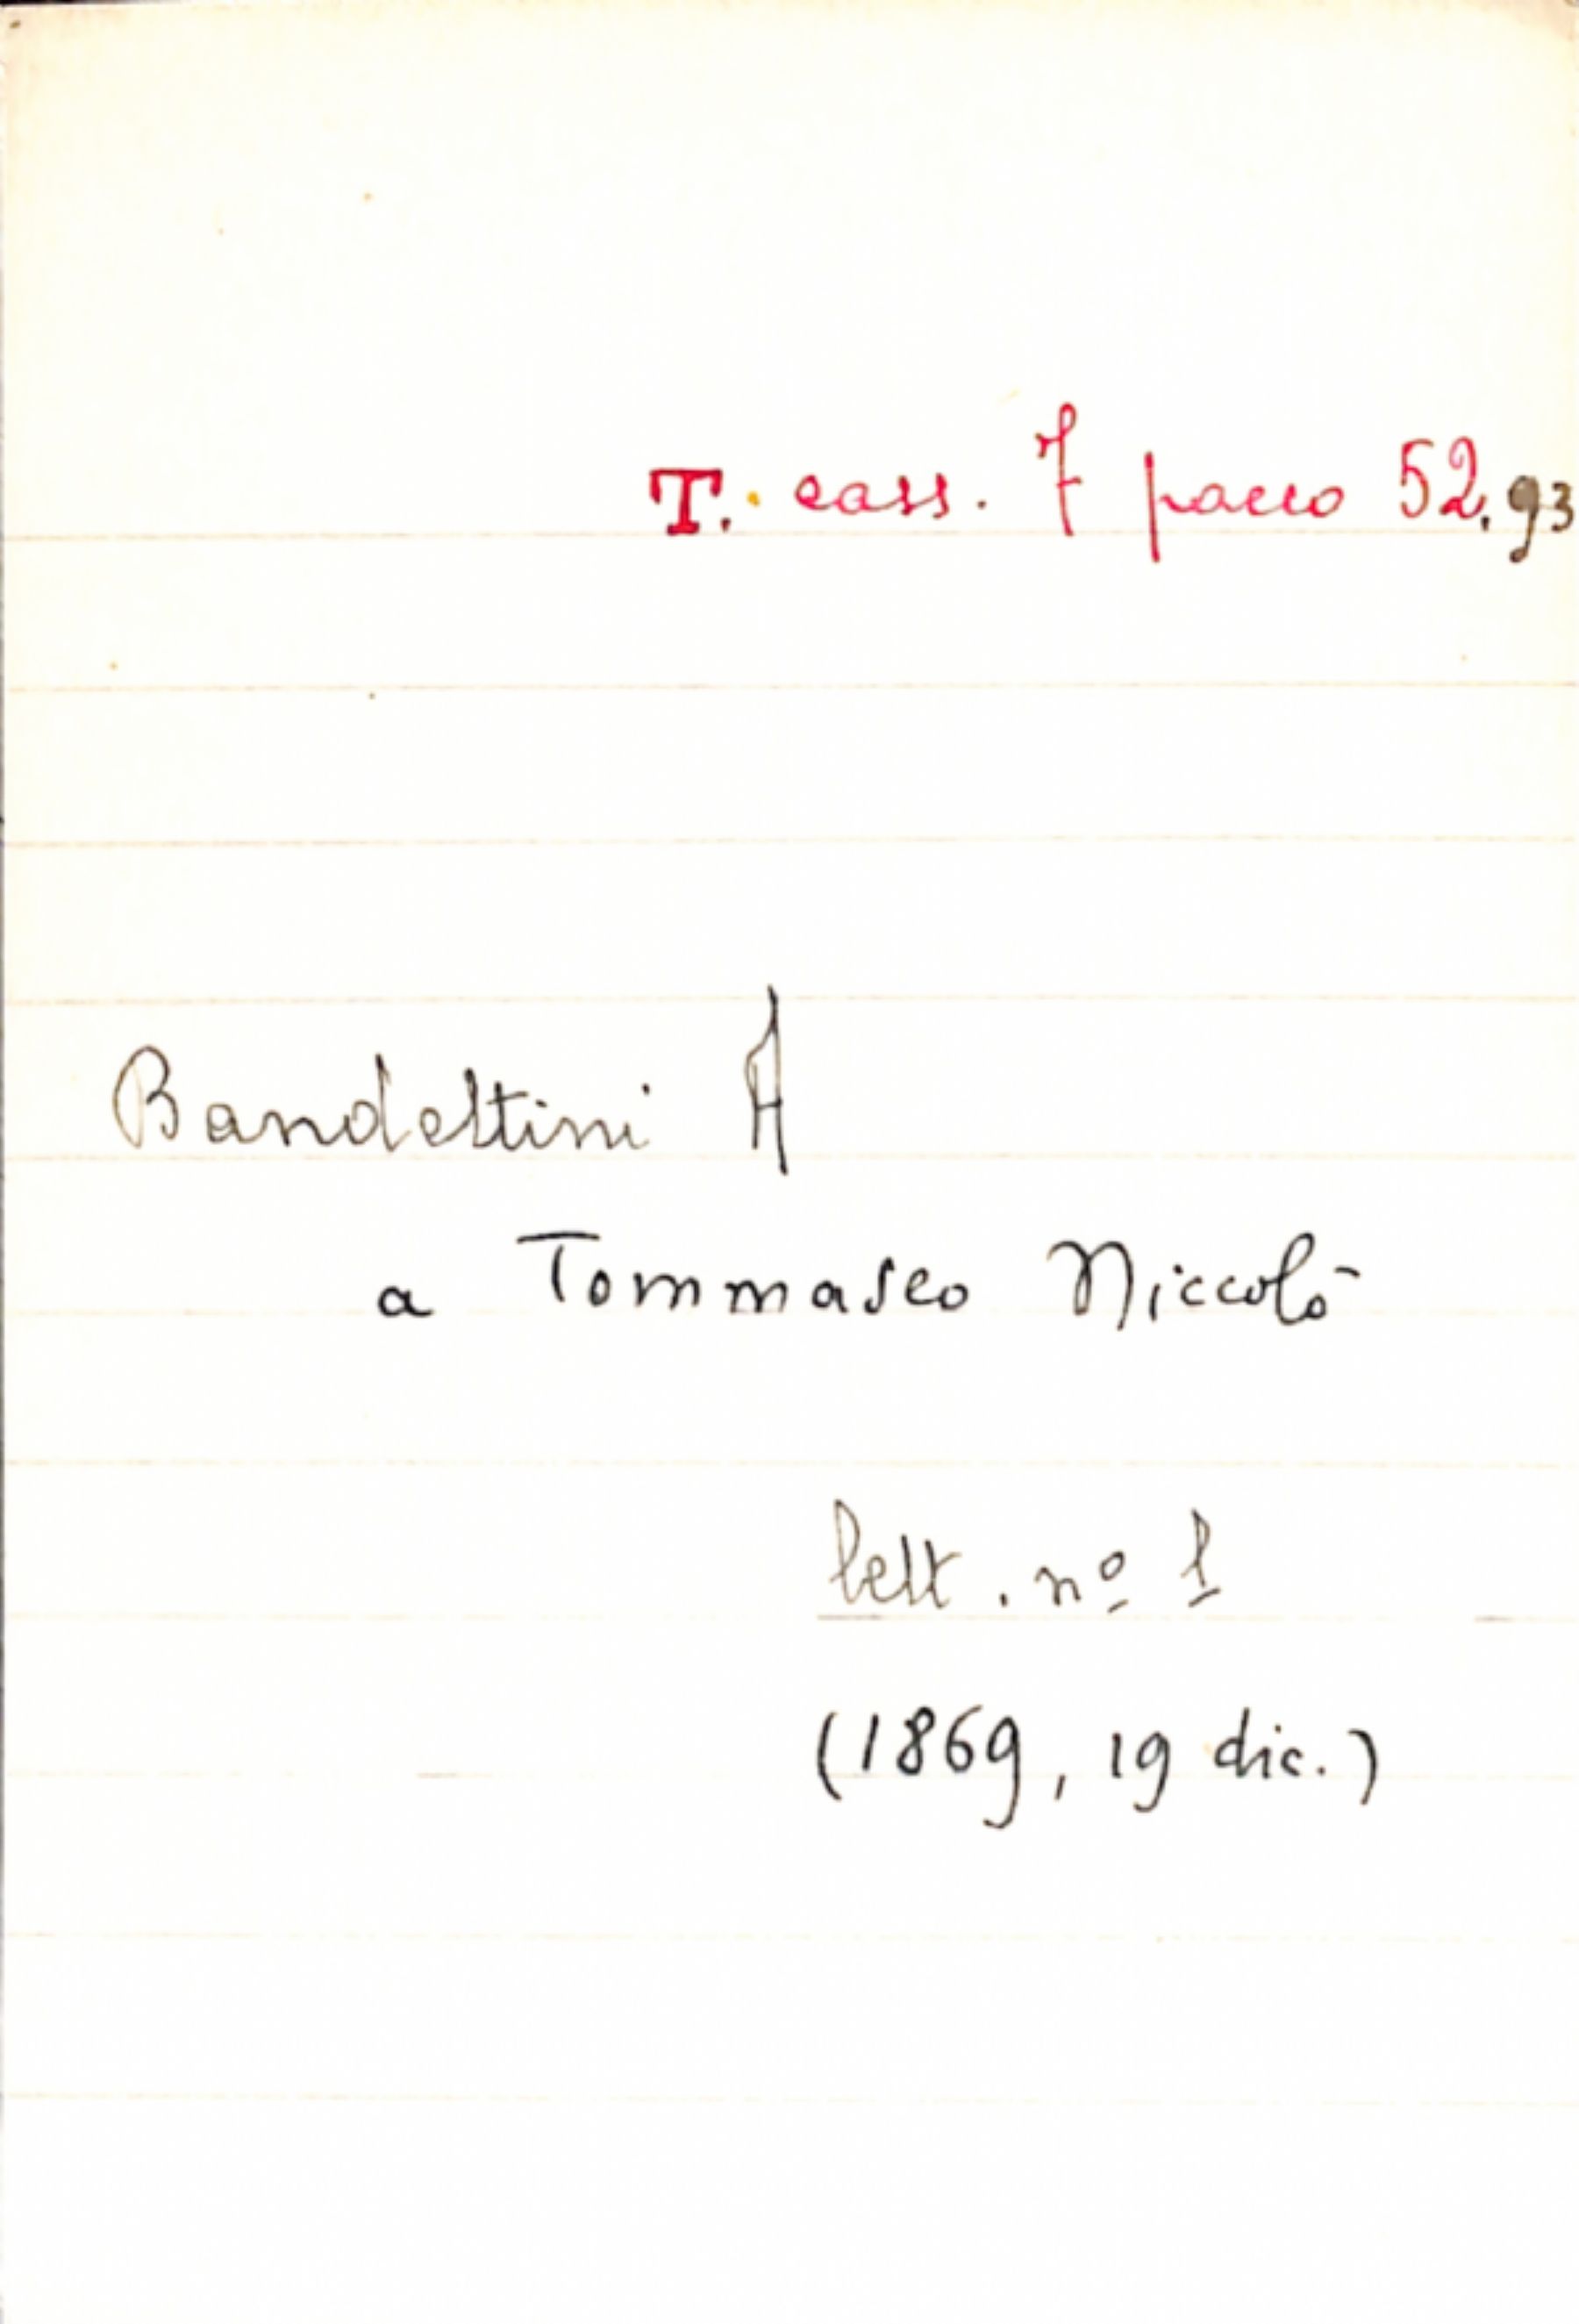 T. cass. 7 pacco 52.93
Bandettini A
a Tommaseo Niccolò
lett. nº 1
(1869, 19 dic.)